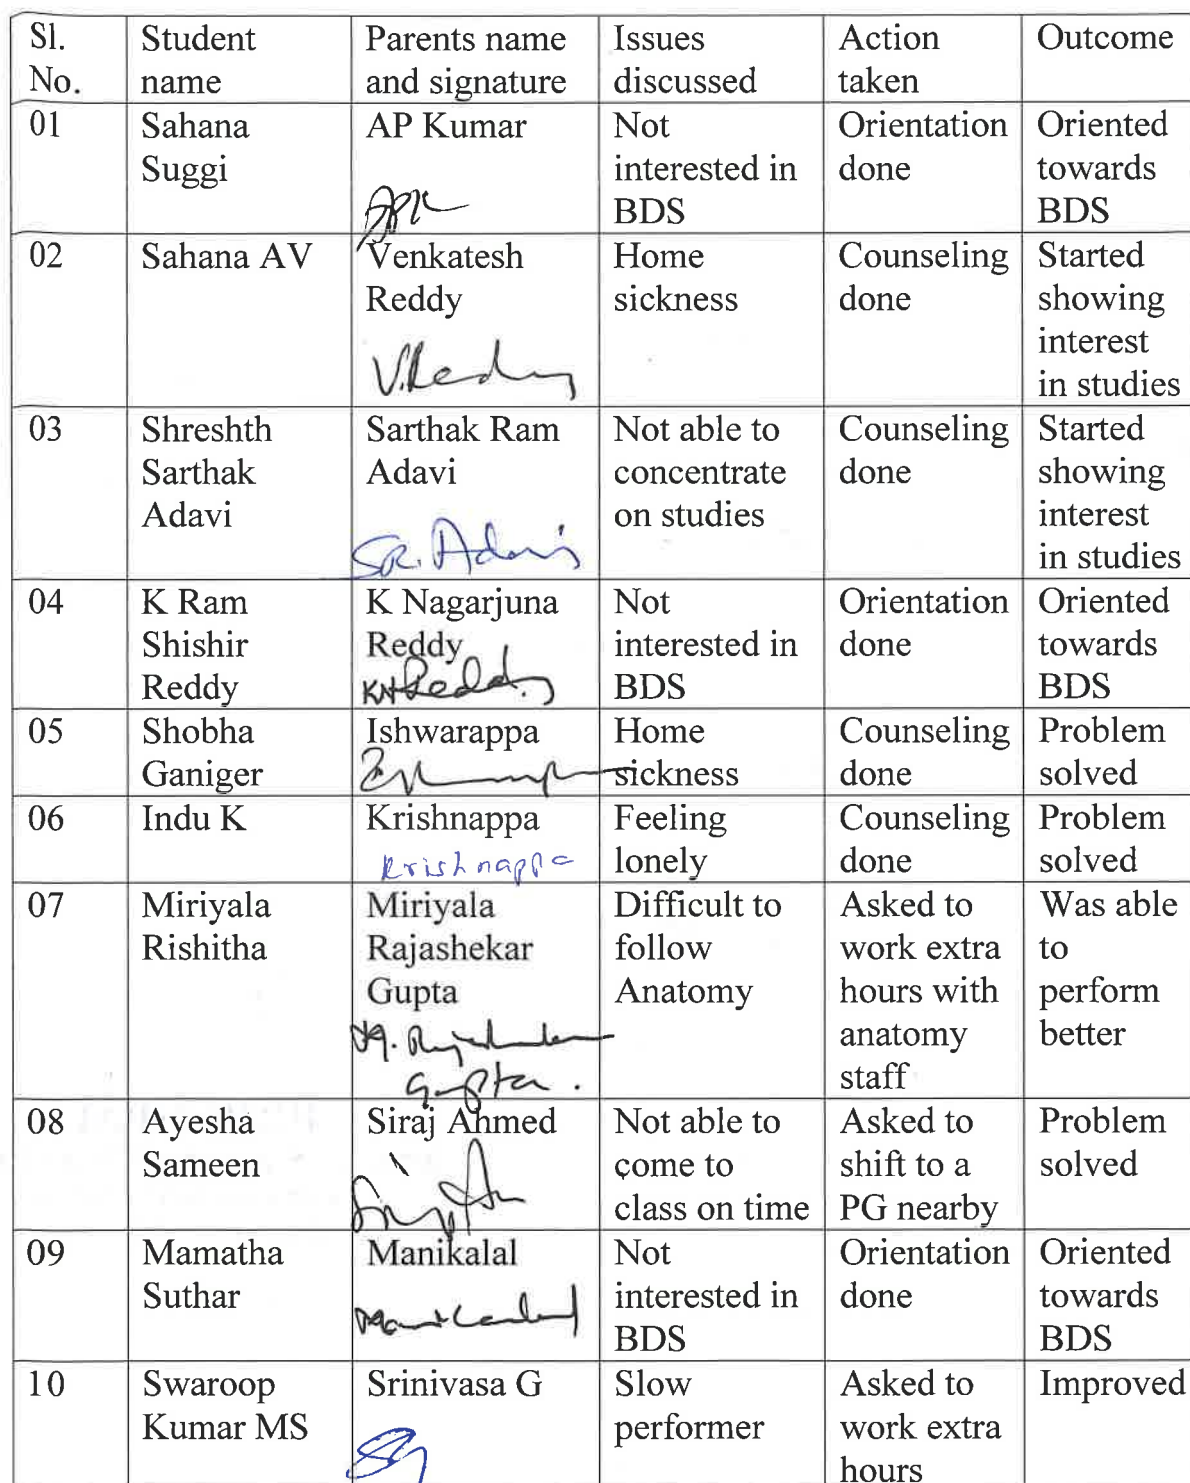 Sl. No. | Student name | Parents name and signature | Issues discussed | Action taken | Outcome
01 | Sahana Suggi | AP Kumar APK | Not interested in BDS | Orientation done | Oriented towards BDS
02 | Sahana AV | Venkatesh Reddy V.Reddy | Home sickness | Counseling done | Started showing interest in studies
03 | Shreshth Sarthak Adavi | Sarthak Ram Adavi SR. Adavi | Not able to concentrate on studies | Counseling done | Started showing interest in studies
04 | K Ram Shishir Reddy | K Nagarjuna Reddy KNReddy | Not interested in BDS | Orientation done | Oriented towards BDS
05 | Shobha Ganiger | Ishwarappa | Home sickness | Counseling done | Problem solved
06 | Indu K | Krishnappa Krishnappa | Feeling lonely | Counseling done | Problem solved
07 | Miriyala Rishitha | Miriyala Rajashekar Gupta M. Rajashekar Gupta. | Difficult to follow Anatomy | Asked to work extra hours with anatomy staff | Was able to perform better
08 | Ayesha Sameen | Siraj Ahmed | Not able to come to class on time | Asked to shift to a PG nearby | Problem solved
09 | Mamatha Suthar | Manikalal | Not interested in BDS | Orientation done | Oriented towards BDS
10 | Swaroop Kumar MS | Srinivasa G | Slow performer | Asked to work extra hours | Improved